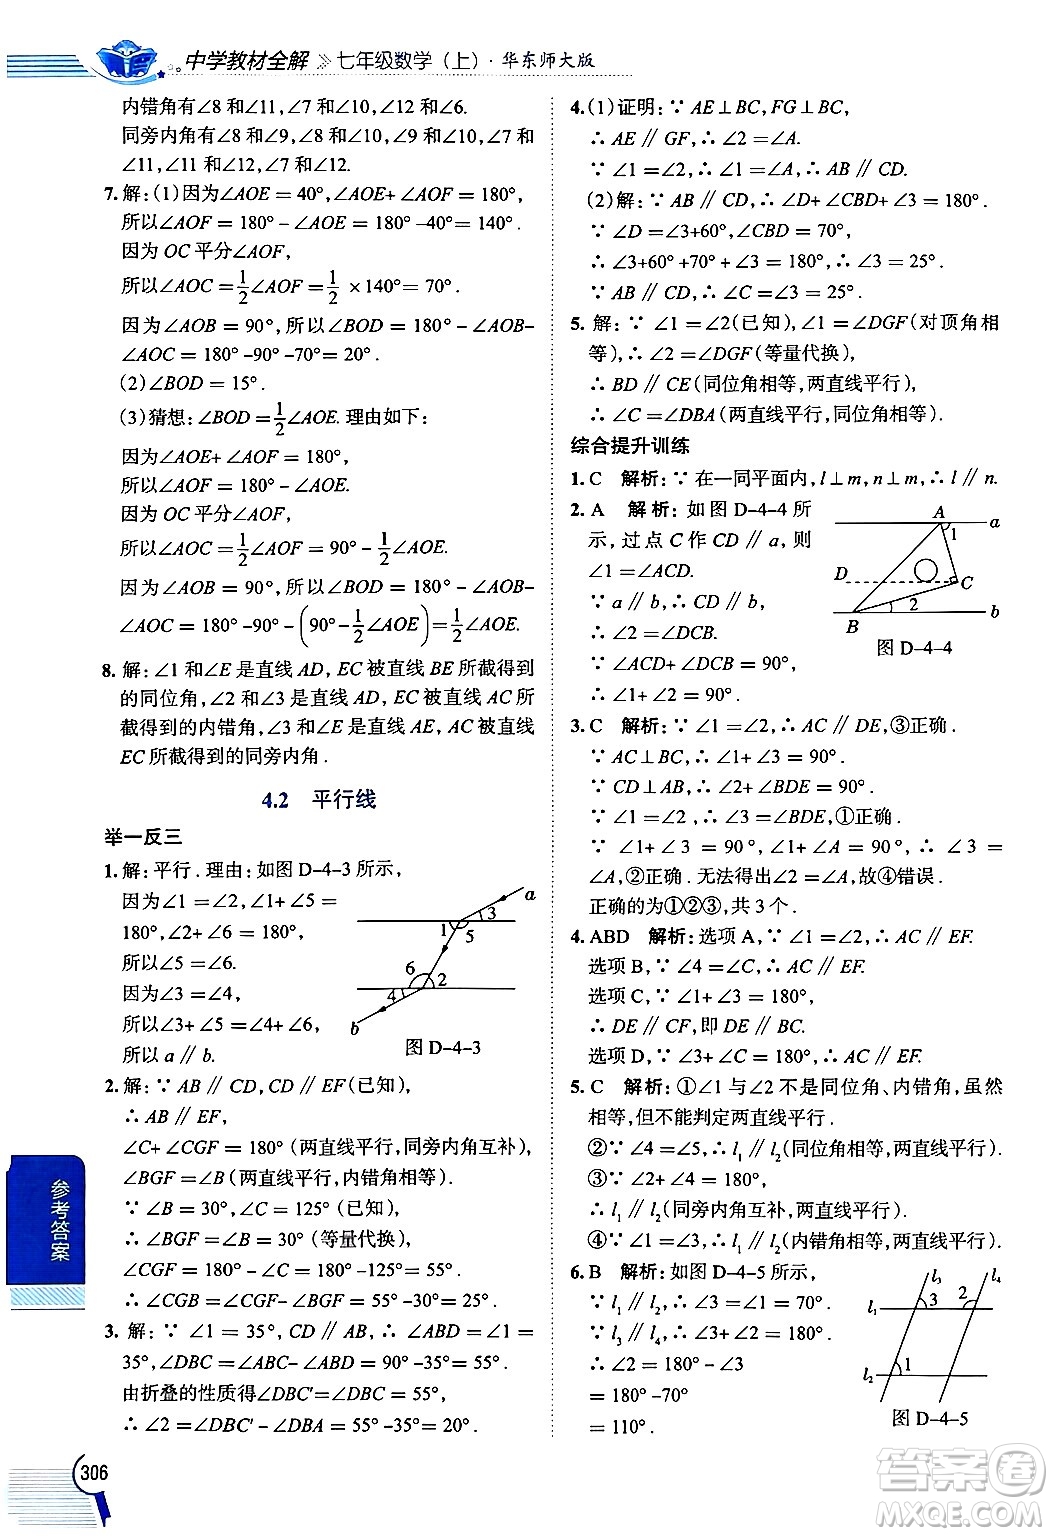 中学教材全解 》七年级数学（上）· 华东师大版
内错角有∠8 和∠11，∠7 和∠12，∠2 和∠6.
同旁内角有∠8 和∠9，∠8 和∠10，∠9 和∠10，∠7 和
∠11，∠11 和∠12，∠7 和∠12.
7. 解：(1)因为∠AOE = 40°，∠AOE+ ∠AOF = 180°，
所以∠AOF = 180° – ∠AOE = 180° –40°= 140° .
因为 OC 平分∠AOF，
所以∠AOC = 1/2 ∠AOF = 1/2 ×140°= 70° .
因为∠AOB = 90°，所以∠BOD = 180° – ∠AOB–
∠AOC = 180° –90° –70°= 20° .
(2)∠BOD = 15° .
(3)猜想：∠BOD = 1/2 ∠AOE. 理由如下：
因为∠AOE+ ∠AOF = 180°，
所以∠AOF = 180° – ∠AOE.
因为 OC 平分∠AOF，
所以∠AOC = 1/2 ∠AOF = 90° – 1/2 ∠AOE.
因为∠AOB = 90°，所以∠BOD = 180° – ∠AOB–
∠AOC = 180° –90° – (90° – 1/2 ∠AOE) = 1/2 ∠AOE.
8. 解：∠1 和∠E 是直线 AD，EC 被直线 BE 所截得到
的同位角，∠2 和∠3 是直线 AD，EC 被直线 AC 所
截得到的内错角，∠3 和∠E 是直线 AE，AC 被直线
EC 所截得到的同旁内角 .
4.2 平行线
举一反三
1. 解：平行 . 理由：如图 D–4–3 所示，
因为∠1 = ∠2，∠1+ ∠5 =
180°，∠2+ ∠6 = 180°，
所以∠5 = ∠6.
因为∠3 = ∠4，
所以∠3+ ∠5 = ∠4+ ∠6，
所以 a ∥ b.
a
3
1
5
6
2
4
b
图 D–4–3
2. 解：∵ AB ∥ CD，CD ∥ EF(已知)，
∴ AB ∥ EF，
∠C+ ∠CGF = 180° (两直线平行，同旁内角互补)，
∠BGF = ∠B (两直线平行，内错角相等).
∵ ∠B = 30°，∠C = 125° (已知)，
∴ ∠BGF = ∠B = 30° (等量代换)，
∠CGF = 180° – ∠C = 180° –125°= 55° .
∴ ∠CGB = ∠CGF– ∠BGF = 55° –30°= 25° .
3. 解：∵ ∠1 = 35°，CD ∥ AB，∴ ∠ABD = ∠1 =
35°，∠DBC = ∠ABC– ∠ABD = 90° –35°= 55° .
由折叠的性质得∠DBC′= ∠DBC = 55°，
∴ ∠2 = ∠DBC′ – ∠DBA = 55° –35°= 20° .
4. (1)证明：∵ AE⊥BC，FG⊥BC，
∴ AE ∥ GF，∴ ∠2 = ∠A.
∵ ∠1 = ∠2，∴ ∠1 = ∠A，∴ AB ∥ CD.
(2)解：∵ AB ∥ CD，∴ ∠D+ ∠CBD+ ∠3 = 180° .
∵ ∠D = ∠3+60°，∠CBD = 70°，
∴ ∠3+60° +70°+ ∠3 = 180°，∴ ∠3 = 25° .
∵ AB ∥ CD，∴ ∠C = ∠3 = 25° .
5. 解：∵ ∠1 = ∠2(已知)，∠1 = ∠DGF(对顶角相
等)，∴ ∠2 = ∠DGF(等量代换)，
∴ BD ∥ CE(同位角相等，两直线平行)，
∴ ∠C = ∠DBA (两直线平行，同位角相等).
综合提升训练
1. C 解析：∵ 在一同平面内，l⊥m，n⊥m，∴ l ∥ n.
2. A 解析：如图 D–4–4 所
示，过点 C 作 CD ∥ a，则
∠1 = ∠ACD.
∵ a ∥ b，∴ CD ∥ b，
∴ ∠2 = ∠DCB.
∵ ∠ACD+ ∠DCB = 90°，
∴ ∠1+ ∠2 = 90° .
A
a
1
D
C
2
B
b
图 D–4–4
3. C 解析：∵ ∠1 = ∠2，∴ AC ∥ DE，③正确 .
∵ AC⊥BC，∴ ∠1+ ∠3 = 90° .
∵ CD⊥AB，∴ ∠2+ ∠BDE = 90° .
∵ ∠1 = ∠2，∴ ∠3 = ∠BDE，①正确 .
∵ ∠1+ ∠3 = 90°，∠1+ ∠A = 90°，∴ ∠3 =
∠A，②正确 . 无法得出∠2 = ∠A，故④错误 .
正确的为①②③，共 3 个 .
4. ABD 解析：选项 A，∵ ∠1 = ∠2，∴ AC ∥ EF.
选项 B，∵ ∠4 = ∠C，∴ AC ∥ EF.
选项 C，∵ ∠1+ ∠3 = 180°，
∴ DE ∥ CF，即 DE ∥ BC.
选项 D，∵ ∠3+ ∠C = 180°，∴ AC ∥ EF.
5. C 解析：①∠1 与∠2 不是同位角、内错角，虽然
相等，但不能判定两直线平行 .
②∵ ∠4 = ∠5，∴ l₁ ∥ l₂(同位角相等，两直线平行).
③∵ ∠2+ ∠5 = 180°，
∴ l₁ ∥ l₂(同旁内角互补，两直线平行).
④∵ ∠1 = ∠3，∴ l₁ ∥ l₂(内错角相等，两直线平行).
6. B 解析：如图 D–4–5 所示，
∵ l₁ ∥ l₂，∴ ∠3 = ∠1 = 70° .
∵ l₃ ∥ l₄，∴ ∠2+ ∠3 = 180° .
∴ ∠2 = 180° – ∠3
= 180° –70°
= 110° .
l₃
l₄
l₁
3
2
l₂
1
图 D–4–5
参考答案
306
答案圈
MXQE.COM